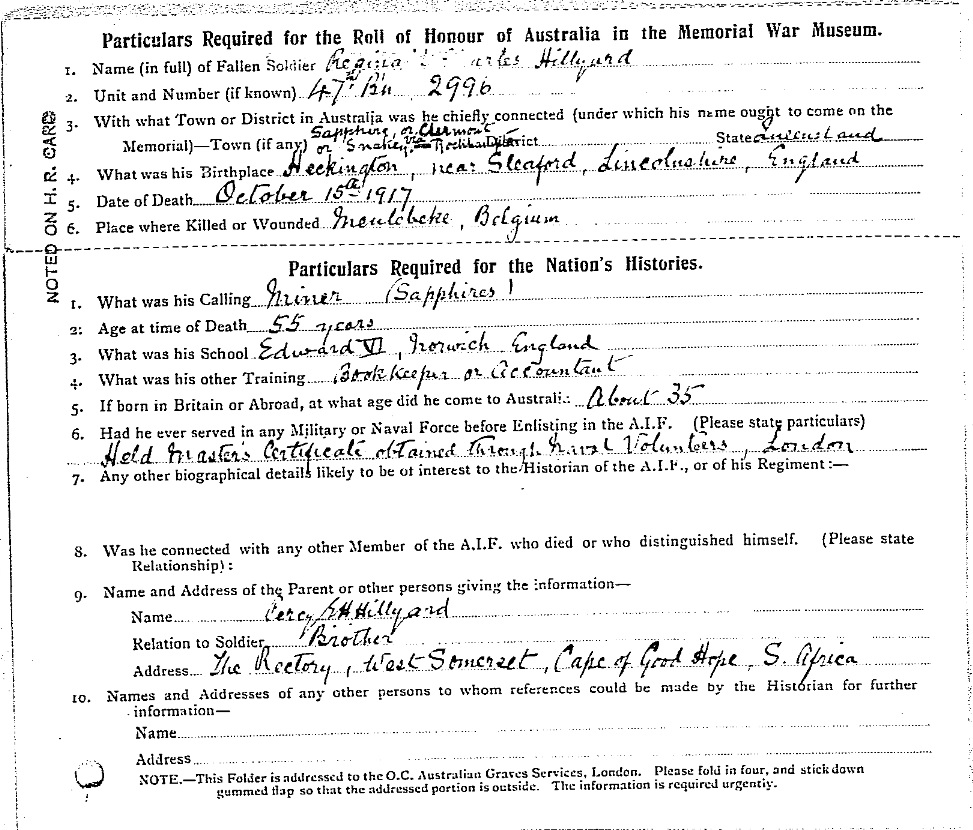 Particulars Required for the Roll of Honour of Australia in the Memorial War Museum.
1. Name (in full) of Fallen Soldier Hillyard
2. Unit and Number (if known) 47th Bn 2996
3. With what Town or District in Australia was he chiefly connected (under which his name ought to come on the
Sapphire, or Clermont
Memorial)—Town (if any) or "Snakey District State Queensland
4. What was his Birthplace Heckington, near Sleaford, Lincolnshire, England
5. Date of Death October 15th 1917
6. Place where Killed or Wounded Meulebeke, Belgium
NOTED ON H. R. CARD
Particulars Required for the Nation's Histories.
1. What was his Calling Miner (Sapphires)
2: Age at time of Death 55 years
3. What was his School Edward VI, Norwich England
4. What was his other Training Bookkeeper or Accountant
5. If born in Britain or Abroad, at what age did he come to Australi: About 35
6. Had he ever served in any Military or Naval Force before Enlisting in the A.I.F. (Please state particulars)
Held Masters Certificate obtained through Naval Volunteers, London
7. Any other biographical details likely to be of interest to the Historian of the A.I.F., or of his Regiment:—
8. Was he connected with any other Member of the A.I.F. who died or who distinguished himself. (Please state
Relationship):
9. Name and Address of the Parent or other persons giving the information—
Name Percy Hillyard
Relation to Soldier Brother
Address The Rectory, West Somerset, Cape of Good Hope, S. Africa
10. Names and Addresses of any other persons to whom references could be made by the Historian for further
information—
Name
Address
NOTE.—This Folder is addressed to the O.C. Australian Graves Services, London. Please fold in four, and stick down
gummed flap so that the addressed portion is outside. The information is required urgently.